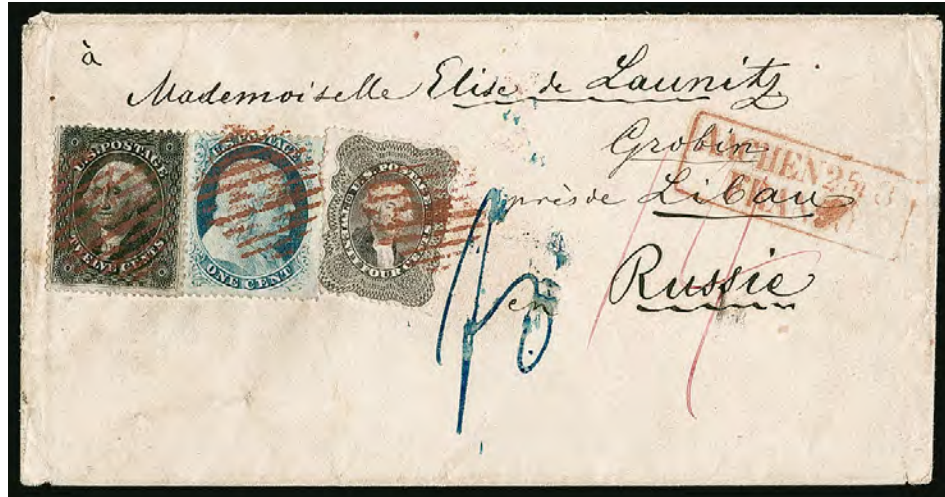 à
Mademoiselle Elise de Launitz
Grobin
près de Libau
en Russie
AACHEN 25 8
FRANCO
U.S. POSTAGE
TWELVE CENTS
U.S. POSTAGE
ONE CENT
U.S. POSTAGE
TWENTY FOUR CENTS